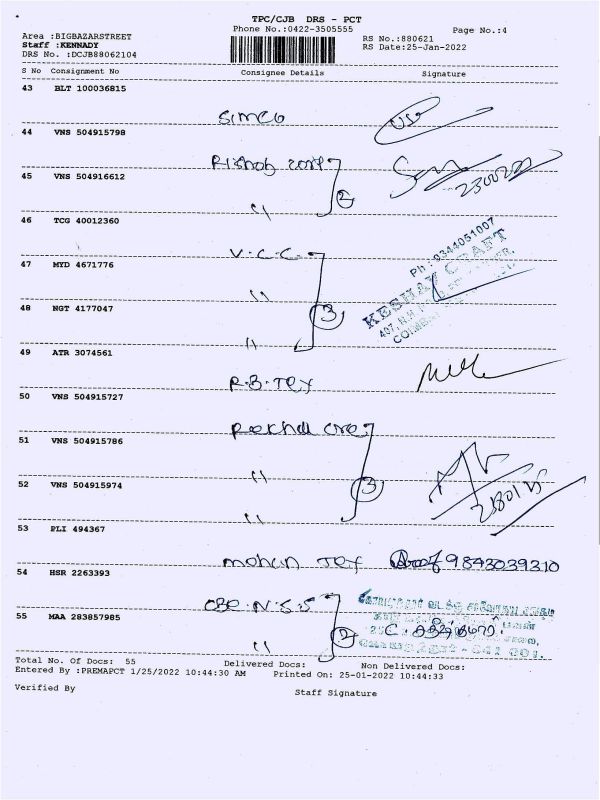 TPC/CJB DRS - PCT
Phone No.:0422-3505555
Page No.:4
Area :BIGBAZARSTREET
RS No.:880621
Staff :KENNADY
RS Date:25-Jan-2022
DRS No. :DCJB88062104
S No Consignment No Consignee Details Signature
43 BLT 100036815
SIMCO
44 VNS 504915798
Rishob
45 VNS 504916612
" 2
46 TCG 40012360
V.C.C
Ph : 9344051007
KESHAV CRAFT
47 MYD 4671776
"
48 NGT 4177047
3
"
49 ATR 3074561
R.B.TEX
50 VNS 504915727
51 VNS 504915786
"
52 VNS 504915974
3
"
53 PLI 494367
mohan TEX 9843039310
54 HSR 2263393
CBE.N.S.S
55 MAA 283857985
2
"
Total No. Of Docs: 55 Delivered Docs: Non Delivered Docs:
Entered By :PREMAPCT 1/25/2022 10:44:30 AM Printed On: 25-01-2022 10:44:33
Verified By
Staff Signature